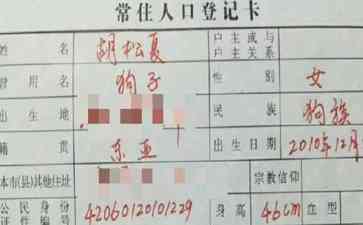 常住人口登记卡
姓名 胡松夏 户主或与户主关系
曾用名 狗子 性别 女
出生地 民族 狗族
籍贯 东亚 出生日期 2010年12月
本市(县)其他住址 宗教信仰
公民身份证件编号 42060120101229 身高 46cm 血型